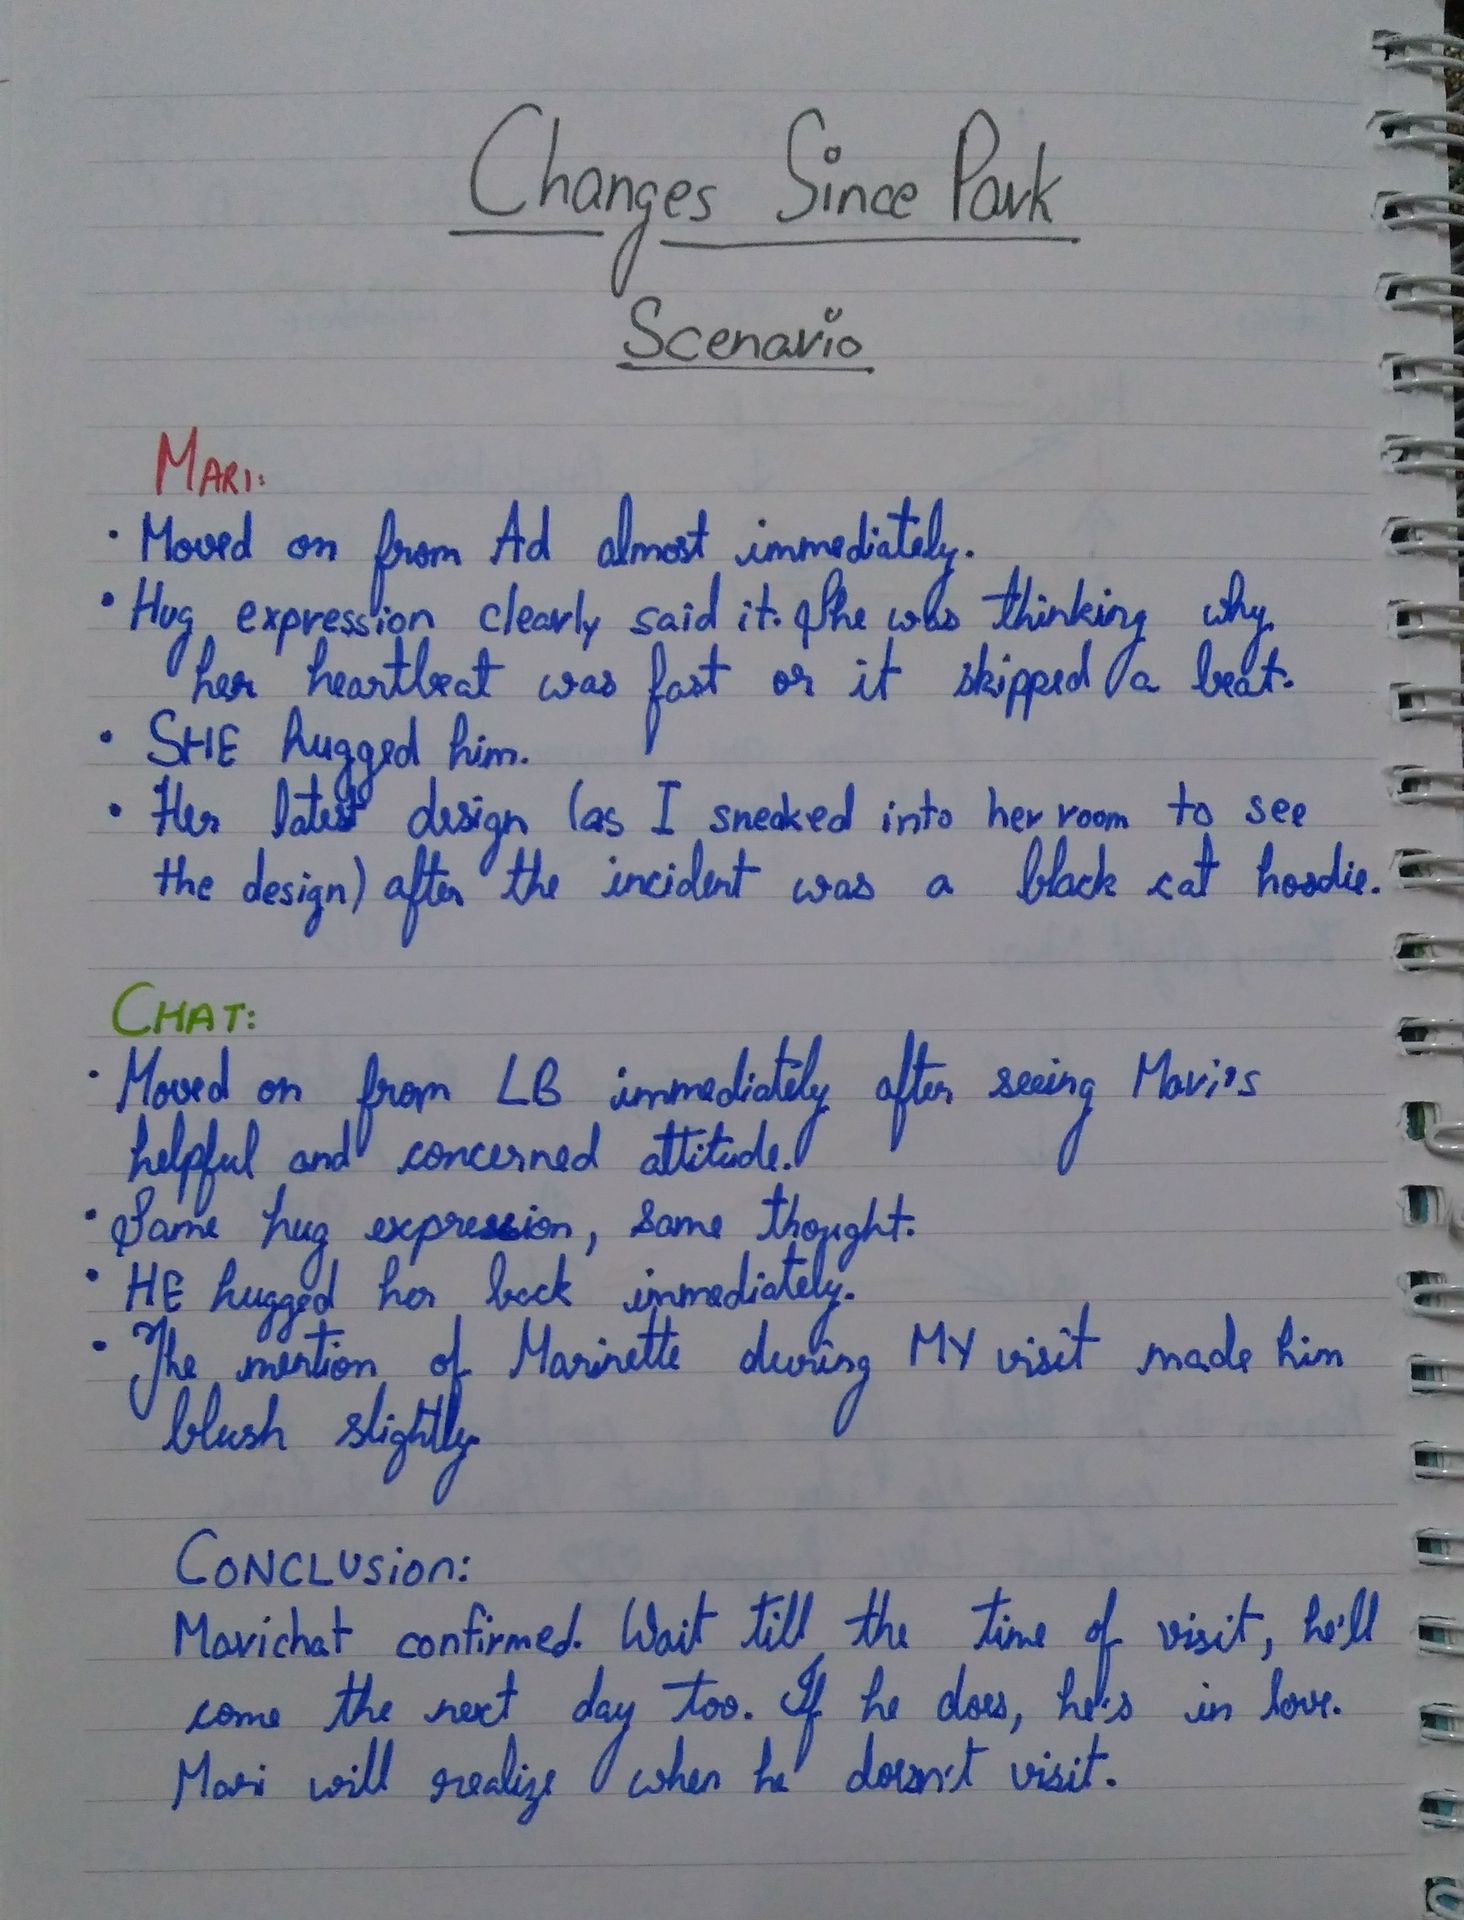 Changes Since Park
Scenario
MARI:
• Moved on from Ad almost immediately.
• Hug expression clearly said it. She was thinking why
her heartbeat was fast or it skipped a beat.
• SHE hugged him.
• Her latest design (as I sneaked into her room to see
the design) after the incident was a black cat hoodie.
CHAT:
• Moved on from LB immediately after seeing Mari's
helpful and concerned attitude.
• Same hug expression, same thought.
• HE hugged her back immediately.
• The mention of Marinette during MY visit made him
blush slightly.
CONCLUSION:
Marichat confirmed. Wait till the time of visit, he'll
come the next day too. If he does, he's in love.
Mari will realize when he doesn't visit.